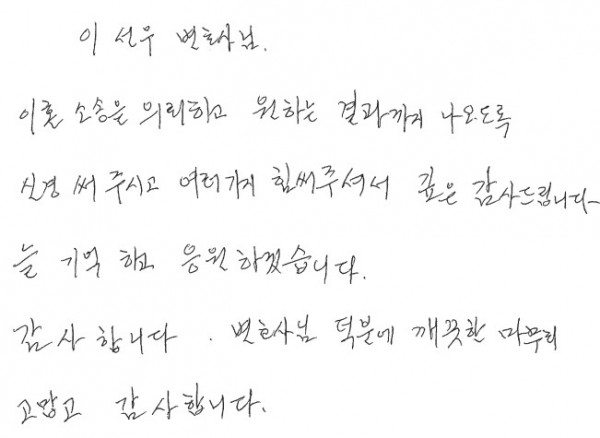 이 선우 변호사님.
이혼 소송을 의뢰하고 원하는 결과까지 나오도록
신경 써 주시고 여러가지 힘써주셔서 깊은 감사드립니다
늘 기억 하고 응원 하겠습니다.
감사 합니다. 변호사님 덕분에 깨끗한 마무리
고맙고 감사합니다.